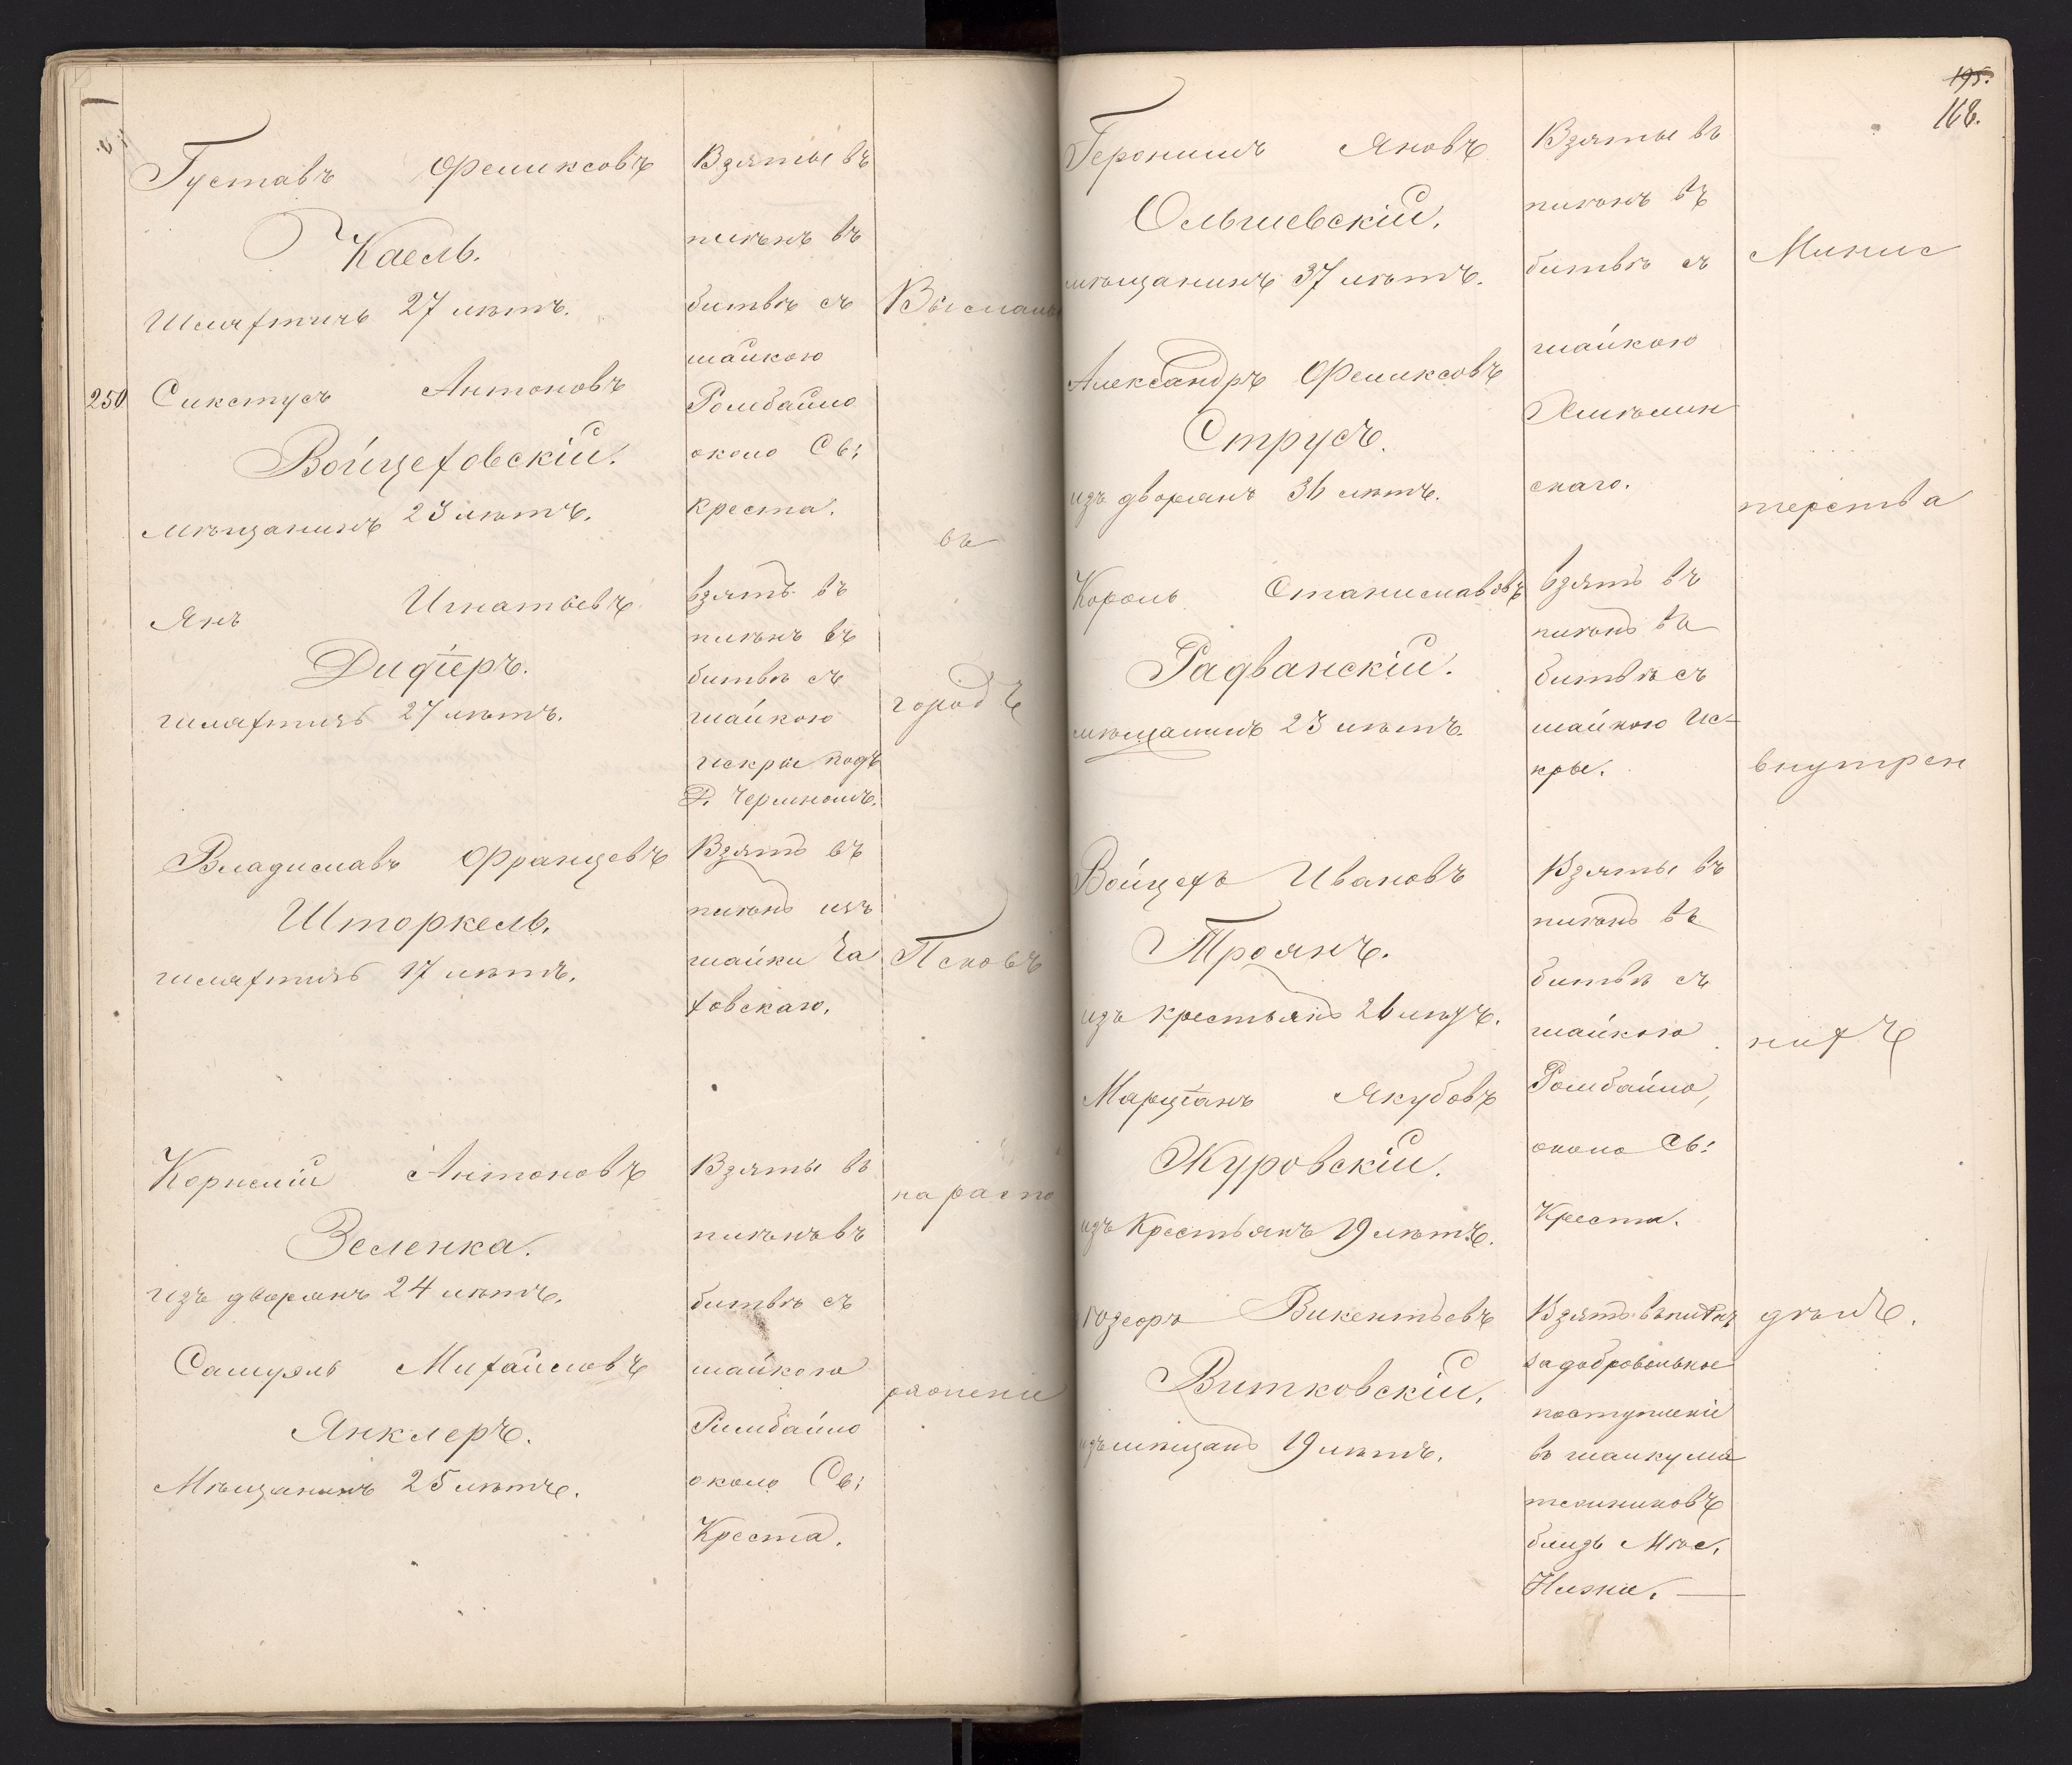 Густавъ Феликсовъ
Каель.
Шляхтичь 27 лѣтъ.
250 Сикстусъ Антоновъ
Войцеховскій.
мѣщанинъ 23 лѣтъ.
Янъ Игнатьевъ
Дидіеръ.
шляхтичь 27 лѣтъ.
Владиславъ Францевъ
Шторкель.
шляхтичь 17 лѣтъ.
Корнелій Антоновъ
Зеленка.
изъ дворянъ 24 лѣтъ.
Самуэль Михайловъ
Янклеръ.
Мѣщанинъ 25 лѣтъ.
Взяты въ
плѣнъ въ
битвѣ съ
шайкою
Ромбайло
около Св:
Креста.
взятъ въ
плѣнъ въ
битвѣ съ
шайкою
искры подъ
Взятъ въ
плѣнъ изъ
шайки Ча
ховскаго.
Взяты въ
плѣнъ въ
битвѣ съ
шайкою
Ромбайло
около Св:
Креста.
Высланы
въ
городъ
Псковъ
на распо
ряженіе
195.
168.
Геронимъ Яновъ
Ольшевскій.
мѣщанинъ 37 лѣтъ.
Александръ Феликсовъ
Струсъ.
изъ дворянъ 36 лѣтъ.
Король Станиславовъ
Радванскій.
мѣщанинъ 23 лѣтъ.
Войцехъ Ивановъ
Троянъ.
изъ крестьянъ 26 лѣтъ.
Марціанъ Якубовъ
Журовскій.
изъ Крестьянъ 19 лѣтъ.
Юзефъ Викентьевъ
Витковскій.
изъ мѣщанъ 19 лѣтъ.
Взяты въ
плѣнъ въ
битвѣ съ
шайкою
Хмѣлин
скаго.
взятъ въ
плѣнъ въ
битвѣ съ
шайкою Ис-
кры.
Взяты въ
плѣнъ въ
битвѣ съ
шайкою
Ромбайло,
около Св:
Креста.
Взятъ въ плѣнъ
за добровольное
поступленіе
въ шайку мя
тежниковъ
близь Мѣс.
Минис
терства
внутрен
нихъ
дѣлъ.